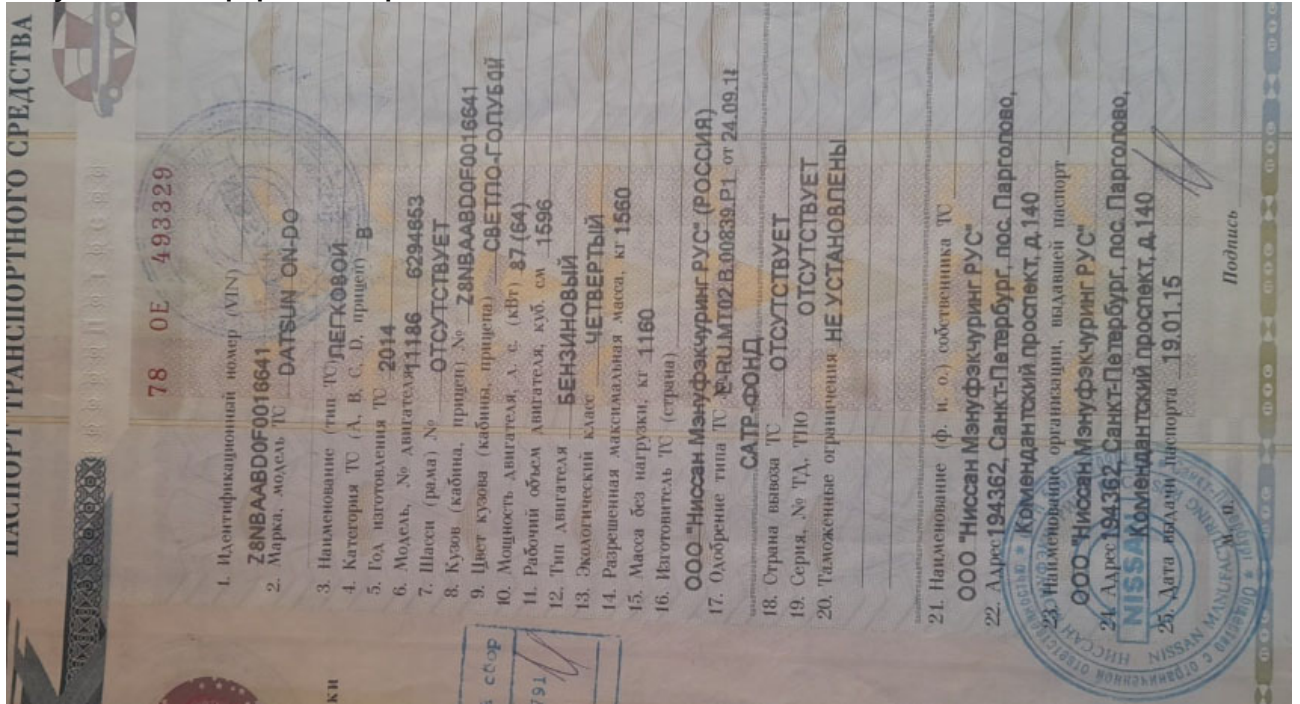 ПАСПОРТ ТРАНСПОРТНОГО СРЕДСТВА
78 ОЕ 493329
1. Идентификационный номер (VIN)
Z8NBAABD0F0016641
2. Марка, модель ТС DATSUN ON-DO
3. Наименование (тип ТС) ЛЕГКОВОЙ
4. Категория ТС (А, В, С, D, прицеп) В
5. Год изготовления ТС 2014
6. Модель, № двигателя 11186 6294653
7. Шасси (рама) № ОТСУТСТВУЕТ
8. Кузов (кабина, прицеп) № Z8NBAABD0F0016641
9. Цвет кузова (кабины, прицепа) СВЕТЛО-ГОЛУБОЙ
10. Мощность двигателя, л. с. (кВт) 87 (64)
11. Рабочий объем двигателя, куб. см 1596
12. Тип двигателя БЕНЗИНОВЫЙ
13. Экологический класс ЧЕТВЕРТЫЙ
14. Разрешенная максимальная масса, кг 1560
15. Масса без нагрузки, кг 1160
16. Изготовитель ТС (страна)
ООО "Ниссан Мэнуфэкчуринг РУС" (РОССИЯ)
17. Одобрение типа ТС № E-RU.MT02.B.00839.P1 от 24.09.14
САТР-ФОНД
18. Страна вывоза ТС ОТСУТСТВУЕТ
19. Серия, № ТД, ТПО ОТСУТСТВУЕТ
20. Таможенные ограничения НЕ УСТАНОВЛЕНЫ
21. Наименование (ф. и. о.) собственника ТС
ООО "Ниссан Мэнуфэкчуринг РУС"
22. Адрес 194362, Санкт-Петербург, пос. Парголово,
Комендантский проспект, д.140
23. Наименование организации, выдавшей паспорт
ООО "Ниссан Мэнуфэкчуринг РУС"
24. Адрес 194362, Санкт-Петербург, пос. Парголово,
Комендантский проспект, д.140
25. Дата выдачи паспорта 19.01.15
М. П.
Подпись
NISSAN
сбор
791
ки